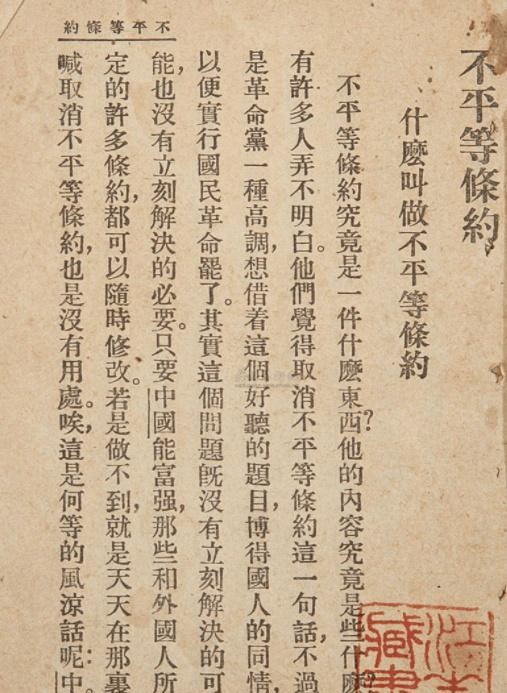 不平等條約
不平等條約
什麽叫做不平等條約
不平等條約究竟是一件什麽東西?他的內容究竟是些什麽?
有許多人弄不明白。他們覺得取消不平等條約這一句話,不過
是革命黨一種高調,想借着這個好聽的題目,博得國人的同情,
以便實行國民革命罷了。其實這個問題旣沒有立刻解決的可
能,也沒有立刻解決的必要。只要中國能富强,那些和外國人所
定的許多條約,都可以隨時修改。若是做不到,就是天天在那裏
喊取消不平等條約,也是沒有用處。唉,這是何等的風涼話呢:中。